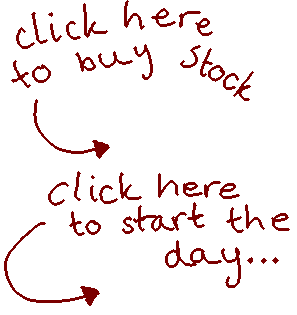 click here
to buy stock
click here
to start the
day...